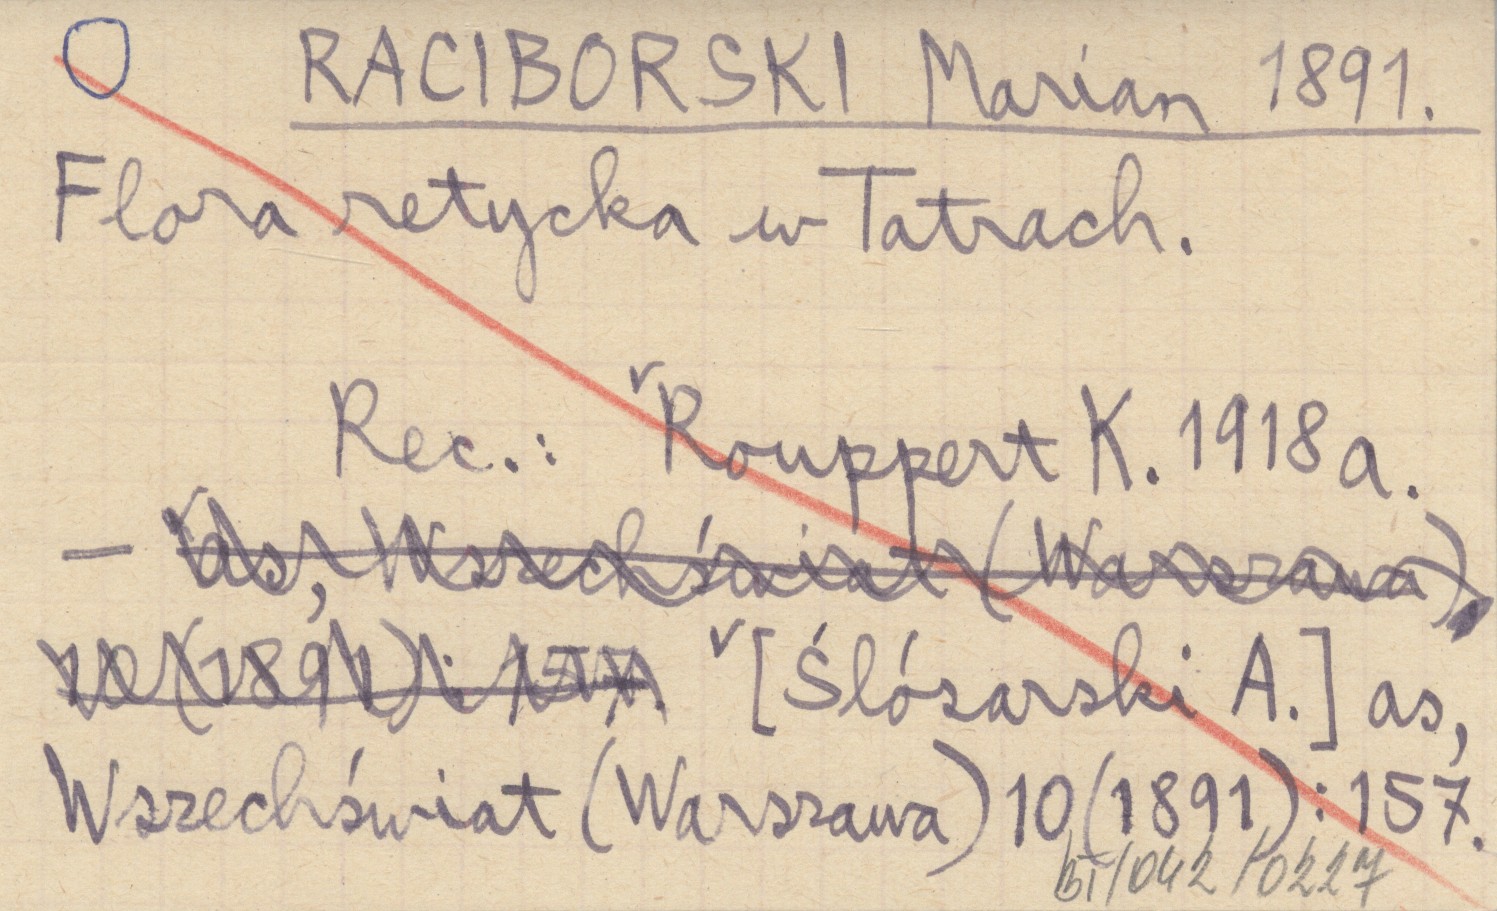 RACIBORSKI Marian 1891.
Flora retycka w Tatrach.
Rec.: Rouppert K. 1918a.
— as, Wszechświat (Warszawa),
10 (1891): 157. [Ślósarski A.] as,
Wszechświat (Warszawa) 10 (1891): 157.
BI/042/0227